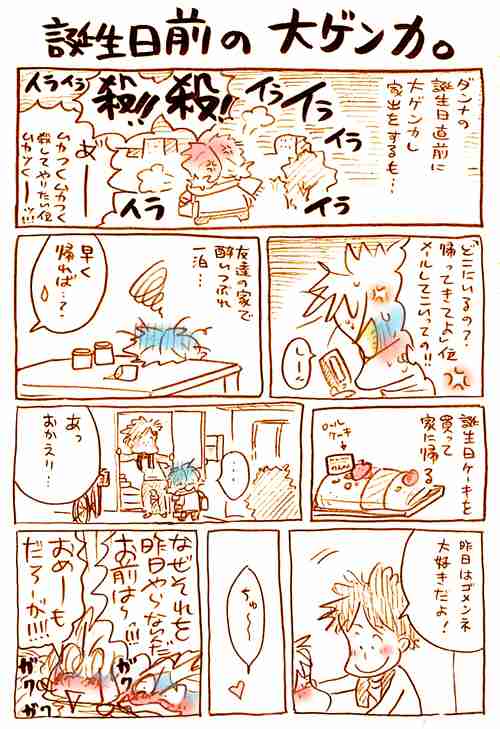 誕生日前の大ゲンカ。
ダンナの
誕生日直前に
大ゲンカし
家出をするも…
イライラ
イラ
イラ
イラ
殺!
殺!!
イラ
イライラ
あ゛ー
ムカつくムカつく
殺してやりたい位
ムカツくーッ!!!
「どこにいるの?
帰ってきてよ」位
メールしてこいっての!!
しーん
友達の家で
酔いつぶれ
一泊…
早く
帰れば…?
誕生日ケーキを
買って
家に帰る
ロールケーキ
…
あっ
おかえり…
昨日はゴメンネ
大好きだよ!
ちゅ〜
なぜそれを
昨日やらないだ
お前は〜っ!!!
おめーも
だろーが!!!!
ガク
ガク
ガク
ガク